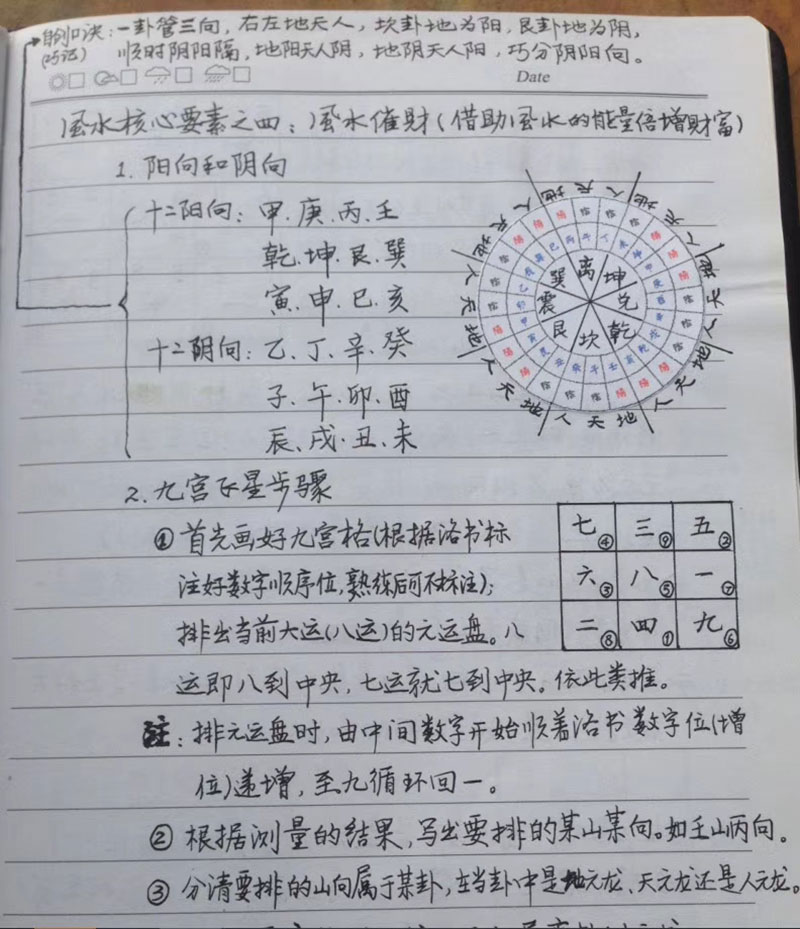 自创口诀:一卦管三向,右左地天人,坎卦地为阳,艮卦地为阴,
(巧记) 顺时阴阳隔,地阳天人阴,地阴天人阳,巧分阴阳向。
Date
风水核心要素之四:风水催财(借助风水的能量倍增财富)
1. 阳向和阴向
十二阳向:甲、庚、丙、壬
乾、坤、艮、巽
寅、申、巳、亥
十二阴向:乙、丁、辛、癸
子、午、卯、酉
辰、戌、丑、未
离 坤 兑 乾 坎 艮 震 巽
地 天 人 地 天 人 地 天 人 地 天 人 地 天 人 地 天 人 地 天 人 地 天 人
2. 九宫飞星步骤
①首先画好九宫格(根据洛书标
注好数字顺序位,熟练后可不标注);
排出当前大运(八运)的元运盘。八
运即八到中央,七运就七到中央。依此类推。
七④ 三⑨ 五②
六③ 八⑤ 一⑦
二⑧ 四① 九⑥
注:排元运盘时,由中间数字开始顺着洛书数字位(增
位)递增,至九循环回一。
② 根据测量的结果,写出要排的某山某向。如壬山丙向。
③ 分清要排的山向属于某卦,在当卦中是地元龙、天元龙还是人元龙。